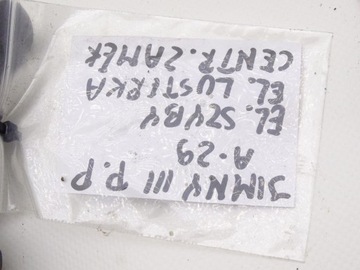 JIMNY III P.P
A-29
EL. SZYBY
EL. LUSTERKA
CENTR. ZAMEK